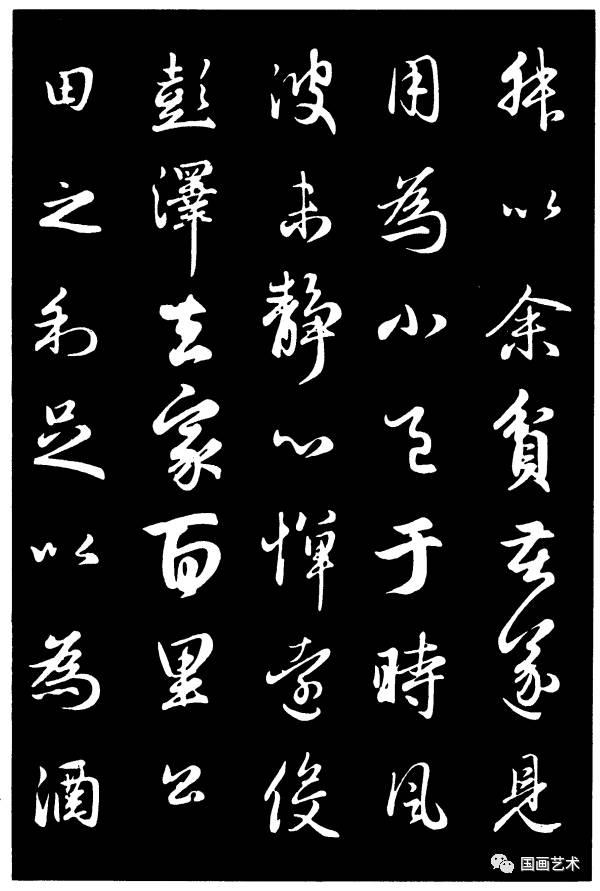 叔以余貧苦遂見
用為小邑于時風
波未靜心憚遠役
彭澤去家百里公
田之利足以為酒
国画艺术